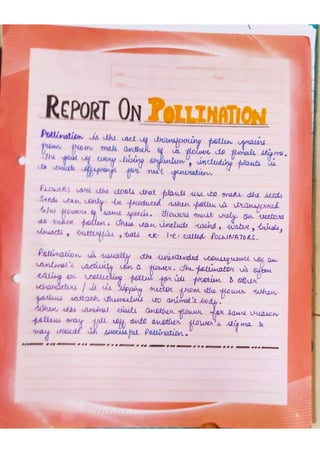 REPORT ON POLLINATION
Pollination is the act of transferring pollen grains
from from male anther of a flower to female stigma.
The goal of every living organism, including plants is
to create offsprings for next generation.
FLOWERS are the tools that plants use to make the seeds
Seeds can only be produced when pollen is transferred
b/w flowers of same species. Flowers must rely on vectors
to move pollen. These can include wind, water, birds,
insects, butterflies, bats etc. i.e. called POLLINATORS.
Pollination is usually the unintended consequence of an
animal's activity on a flower. The pollinator is often
eating or collecting pollen for its protein & other
characters / it is sipping nectar from the flower when
pollens attach themselves to animal's body.
When the animal visits another flower for same reason
pollens may fall off onto another flower's stigma &
may result in successful Pollination.